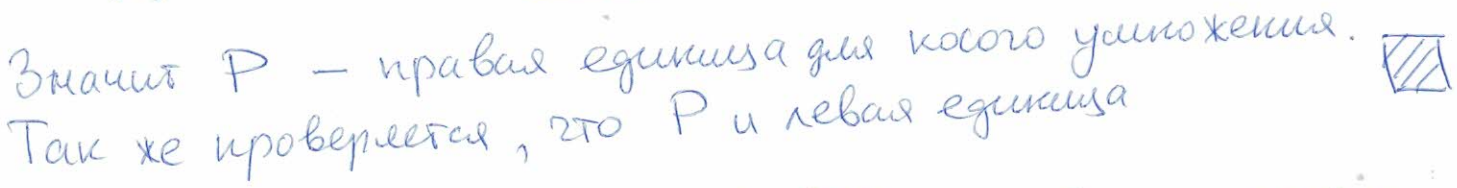 Значит P – правая единица для косого умножения.
Так же проверяется, что P и левая единица